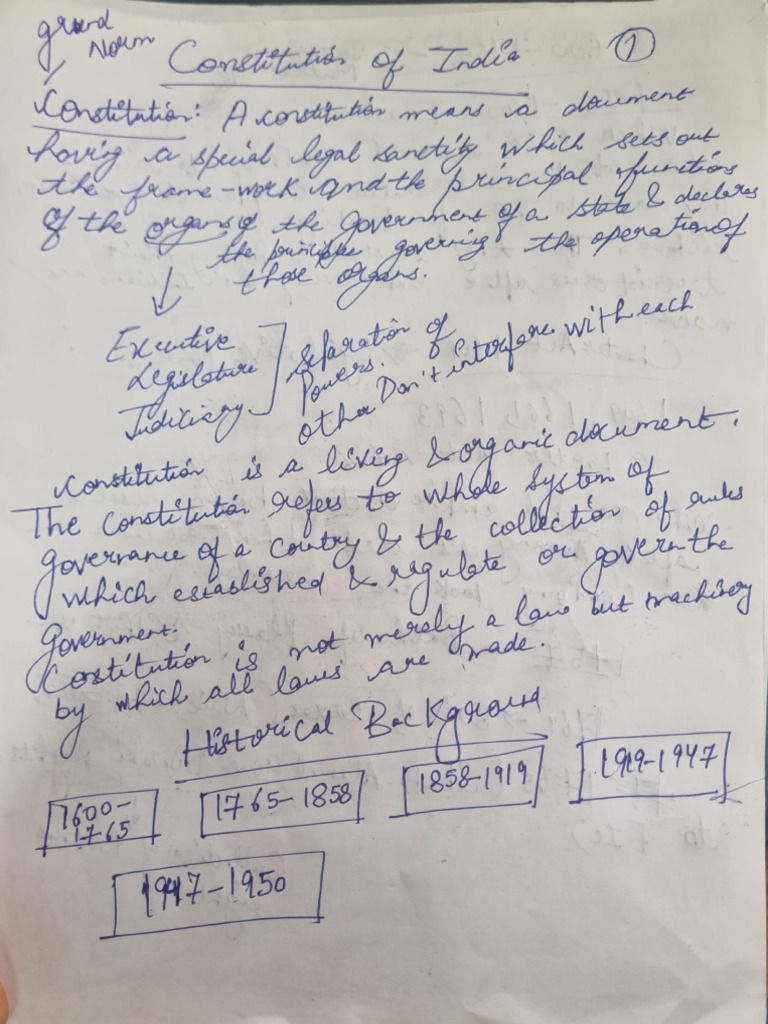 grund
Norm
Constitution of India
1
Constitution: A constitution means a document
having a special legal sanctity which sets out
the frame-work and the principal functions
of the organs of the Government of a state & declares
the principle governing the operation of
those organs.
Executive
Legislature
Judiciary
Separation of
Powers.
Don't interfare with each
other
Constitution is a living & organic document.
The Constitution refers to whole system of
governance of a country & the collection of rules
which established & regulate or govern the
Government.
Costitution is not merely a law but machinery
by which all laws are made.
Historical Background
1600-
1765
1765-1858
1858-1919
1919-1947
1947-1950